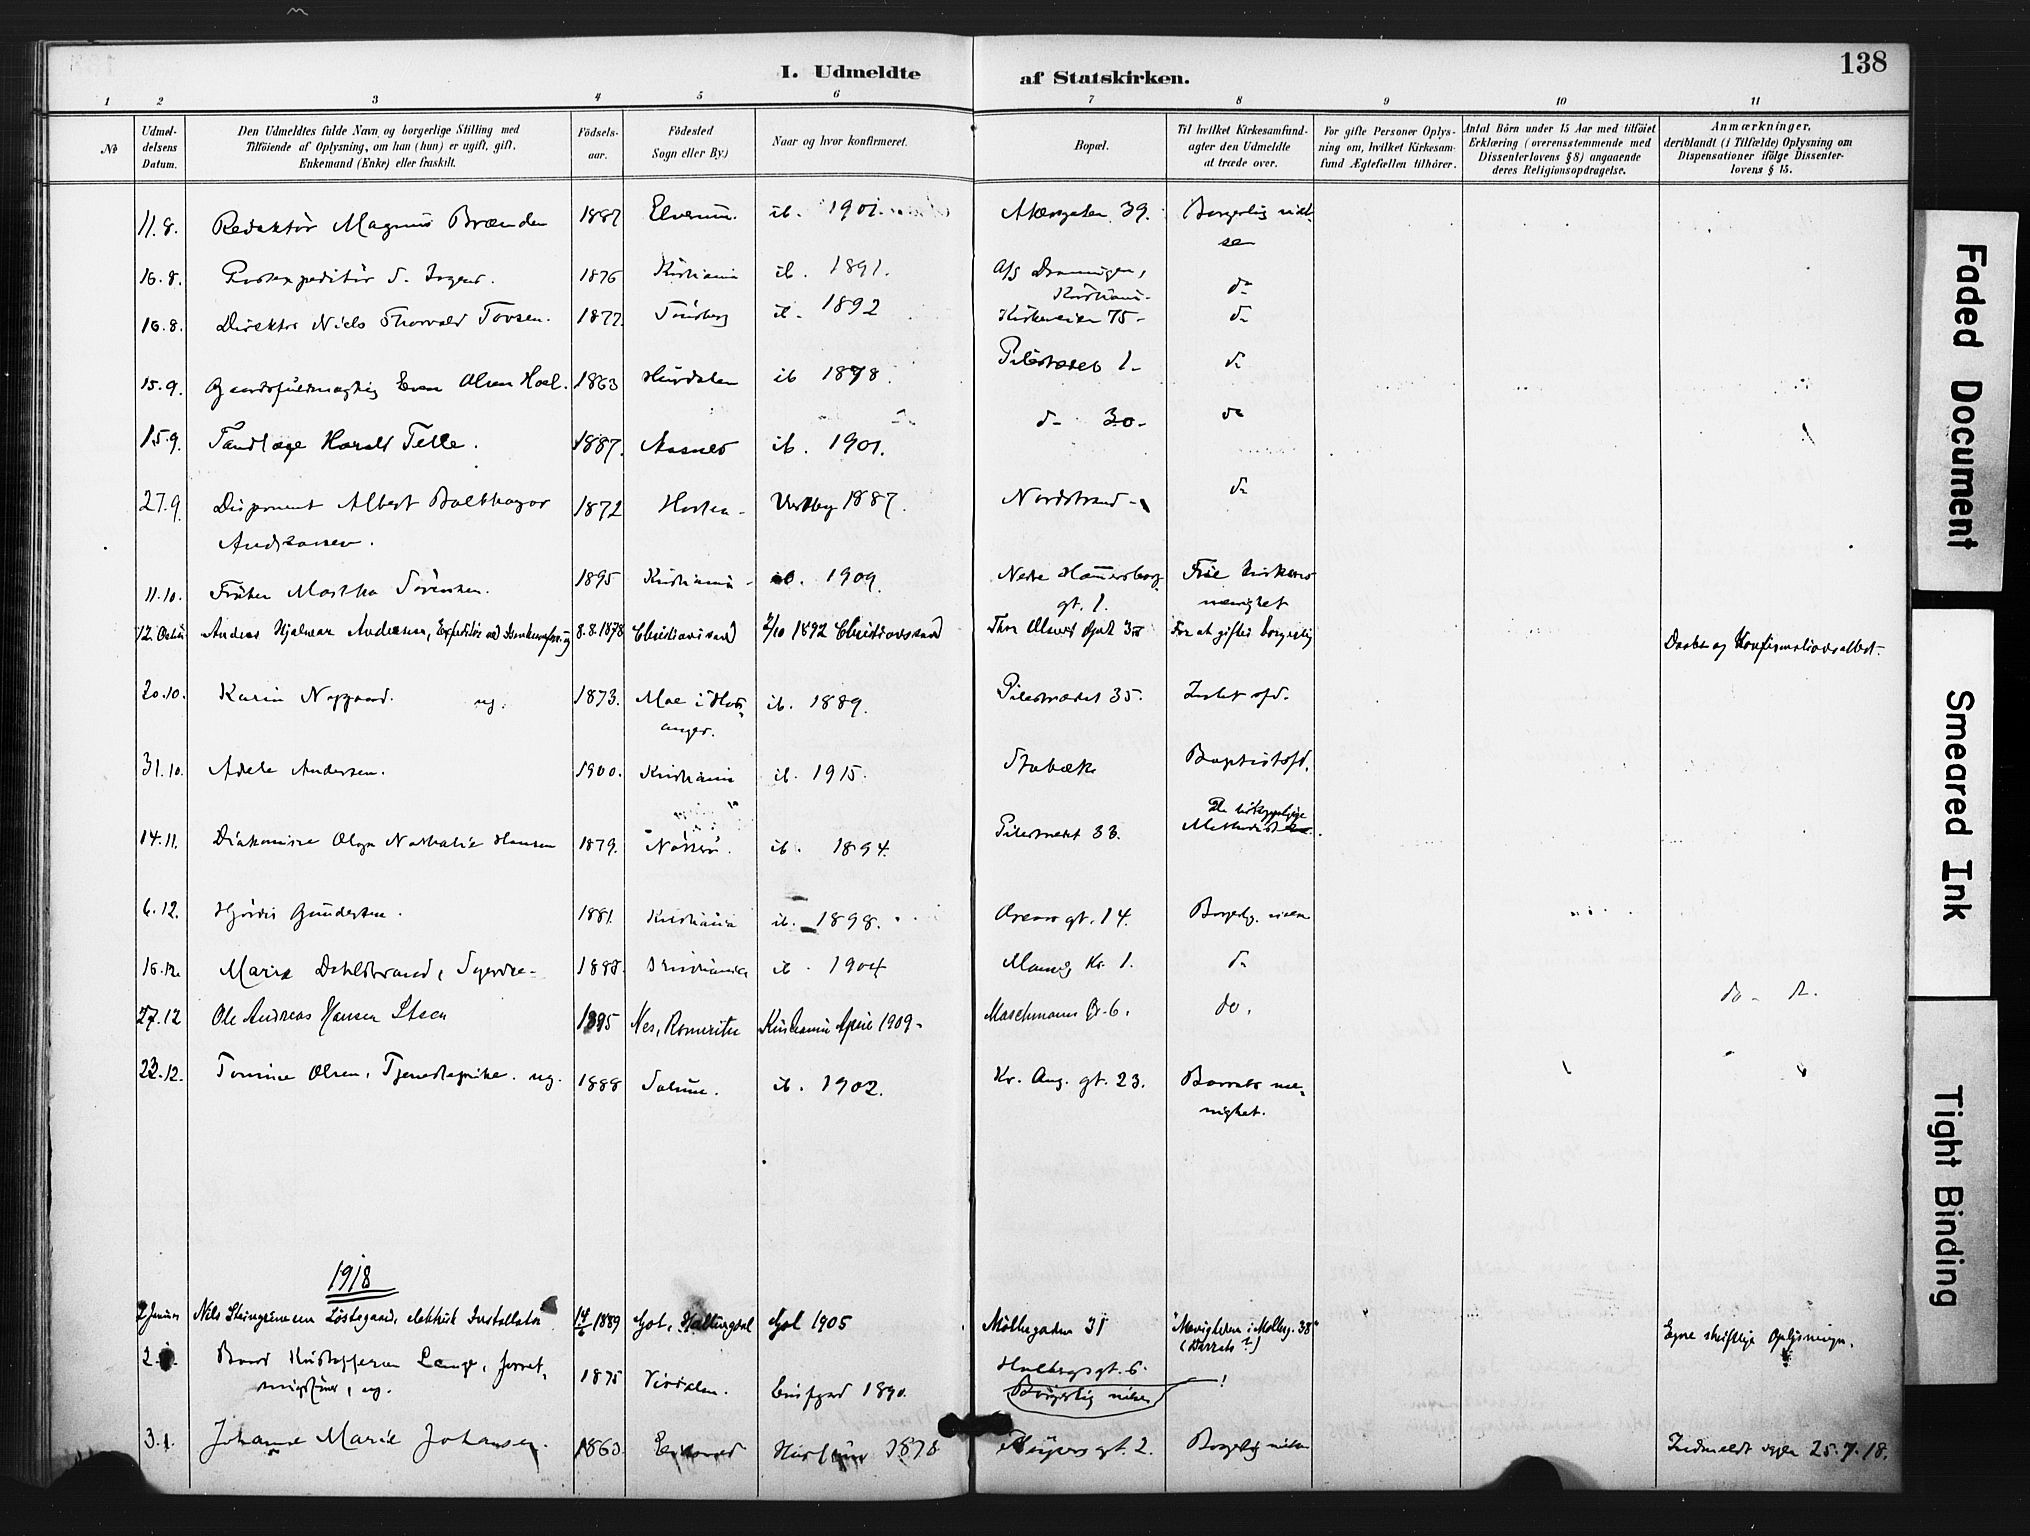 138
I. Udmeldte af Statskirken.
1 2 3 4 5 6 7 8 9 10 11
№
Udmeldelsens Datum.
Den Udmeldtes fulde Navn og borgerlige Stilling med
Tilföiende af Oplysning, om han (hun) er ugift, gift,
Enkemand (Enke) eller fraskilt.
Födselsaar.
Födested
Sogn eller By.)
Naar og hvor konfirmeret.
Bopæl.
Til hvilket Kirkesamfund
agter den Udmeldte
at træde over.
For gifte Personer Oplysning om, hvilket Kirkesamfund Ægtefællen tilhører.
Antal Börn under 15 Aar med tilföiet
Erklæring (overensstemmende med
Dissenterlovens § 8) angaaende
deres Religionsopdragelse.
Anmærkninger,
deriblandt (i Tilfælde) Oplysning om
Dispensationer ifölge Dissenterlovens § 15.
11.8. Redaktör Magnus Brænden 1887 Elverum. ib. 1901. Akersgaten 39. Borgerlig vielse
16.8. Postexpeditör S. 1876 Kristiania ib. 1891. A/S Dramnigen, Kristiania d-
16.8. Direktör Niels Thorvald Tovsen. 1877. Tönsberg ib. 1892 Kirkeveien 75- d-
15.9. Gaardsfuldmægtig Even Olsen Hoel. 1863 Hurdalen ib 1878. Pilestrædet 1- d-
15.9. Tandlæge Harald Telle. 1887. Aasnes ib. 1901. d- 30- do
27.9. Disponent Albert Balthazar 1872 Horten- Vestby 1887. Nordstrand- d-
Andreassen.
11.10. Fröken Martha Sörensen. 1895 Kristiania- ib. 1909. Nedre Hammersborg gt. 1. Frie kirkens menighet
12. Andreas Hjalmar Andersen, Expeditör 8.8.1878 Christianssand 2/10 1892 Christianssand Thv. Olsens Gade For at giftes borgerlig Daabs og Konfirmationsattest.
20.10. Karin Nygaard. ug. 1873. Moe i Hardanger. ib. 1889. Pilestrædet 35. Intet sfd.
31.10. Adele Andersen. 1900. Kristiania ib. 1915. Stabæk Baptistsfd.
14.11. Diakonisse Olga Nathalie Hansen 1879. Nötterö. ib. 1894. Pilestrædet 33. De biskoppelige Methodister.
6.12. Hjördis Gundersen. 1881. Kristiania ib. 1898. Oscars gt. 14. Borgerlig. vielse
16.12. Marie Dahlstrand, Syerske- 1888. Kristiania ib. 1904 Kr. 1. d-
27.12 Ole Andreas Hansen Steen 1895 Nes, Romerike Kristiania April 1909- Maschmanns Gr. 6. do. do- d-
23.12. Tomine Olsen, Tjenestepike. ug. 1888 Solum. ib. 1902. Kr. Aug. gt. 23. Barrats menighet.
1918
2 Januar Nils Steingrimsen Löstegaard, elektrisk Installatör 14/6 1889 Gol, Hallingdal Gol 1905 Möllegaden 31 "Menigheden i Mölleg. 38" (Barrats?) Egne skriftlige Oplysninger.
2. Kristoffersen Lange, forretningsförer, ug. 1875 Verdalen. 1890. Holbergsgt. 6. Borgerlig vielse!
3.1. Johanne Marie Johansen. 1863. Eidsvold Hurdalen 1878 Meyers gt. 2. Borgerlig vielse Indmeldt igjen 25.7.18.
Faded Document
Smeared Ink
Tight Binding